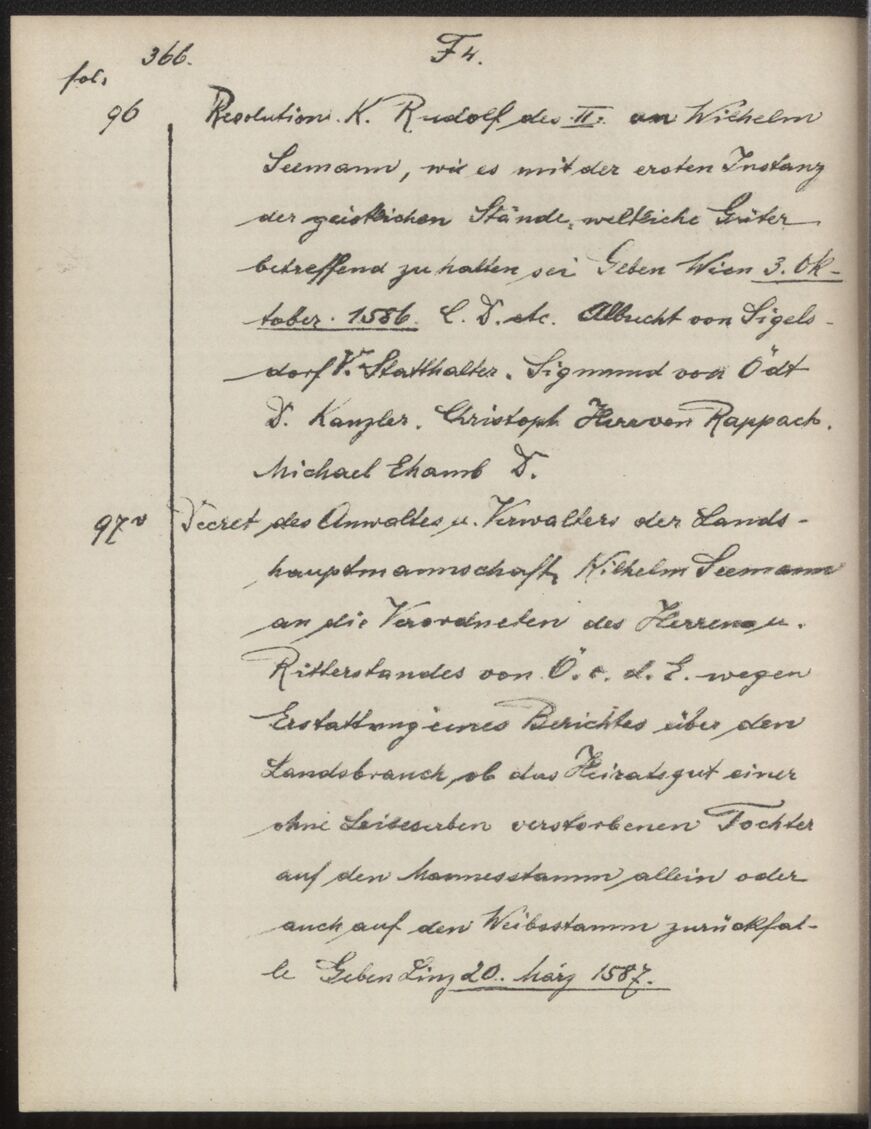 366. F4.
fol.
96 Resolution K. Rudolf des II. an Wilhelm
Seemann, wie es mit der ersten Instanz
der geistlichen Stände, weltliche Güter
betreffend zu halten sei Geben Wien 3. Ok-
tober 1586. C. D. etc. Albrecht von Sigels-
dorf V. Statthalter. Sigmund von Ödt
D. Kanzler. Christoph Herr von Rappach.
Michael Ehamb D.
97v Decret des Anwaltes u. Verwalters der Lands-
hauptmannschaft, Wilhelm Seemann
an die Verordneten des Herren u.
Ritterstandes von Ö. o. d. E. wegen
Erstattung eines Berichtes über den
Landsbrauch, ob das Heiratsgut einer
ohne Leibeserben verstorbenen Tochter
auf den Mannesstamm allein oder
auch auf den Weibsstamm zurückfal-
le Geben Linz 20. März 1587.